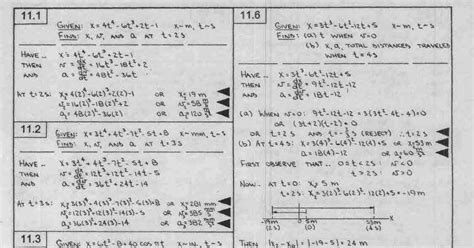 11.1
GIVEN: x=4t⁴-6t³+2t-1   x-m, t-s
FIND: x, v, AND a AT t=2s
HAVE.. x=4t⁴-6t³+2t-1
THEN v=dx/dt=16t³-18t²+2
AND a=dv/dt=48t²-36t
AT t=2s: x=4(2)⁴-6(2)³+2(2)-1 OR x=19 m
v=16(2)³-18(2)²+2 OR v=58 m/s
a=48(2)²-36(2) OR a=120 m/s²
11.2
GIVEN: x=3t⁴+4t³-7t²-5t+8   x-mm, t-s
FIND: x, v, AND a AT t=3s
HAVE.. x=3t⁴+4t³-7t²-5t+8
THEN v=dx/dt=12t³+12t²-14t-5
AND a=dv/dt=36t²+24t-14
AT t=3s: x=3(3)⁴+4(3)³-7(3)²-5(3)+8 OR x=281 mm
v=12(3)³+12(3)²-14(3)-5 OR v=385 mm/s
a=36(3)²+24(3)-14 OR a=382 mm/s²
11.3
GIVEN: x=6t²-8+40 cos πt   x-in., t-s
11.6
GIVEN: x=3t³-6t²-12t+5   x-m, t-s
FIND: (a) t WHEN v=0
(b) x, a, TOTAL DISTANCES TRAVELED
WHEN t=4s
HAVE.. x=3t³-6t²-12t+5
THEN v=dx/dt=9t²-12t-12
AND a=dv/dt=18t-12
(a) WHEN v=0: 9t²-12t-12=3(3t²-4t-4)=0
OR (3t+2)(t-2)=0
OR t=2s AND t=-2/3 s (REJECT) ∴t=2s
(b) AT t=4s: x₄=3(4)³-6(4)²-12(4)+5 OR x₄=53 m
a=18(4)-12 OR a₄=60 m/s²
FIRST OBSERVE THAT.. 0≤t<2s v<0
t>2s v>0
NOW.. AT t=0: x₀=5 m
t=2s: x₂=3(2)³-6(2)²-12(2)+5=-19 m
-19m 0 5m 53m
(2s) (0) (4s)
THEN.. |x₂-x₀|=|-19-5|=24 m